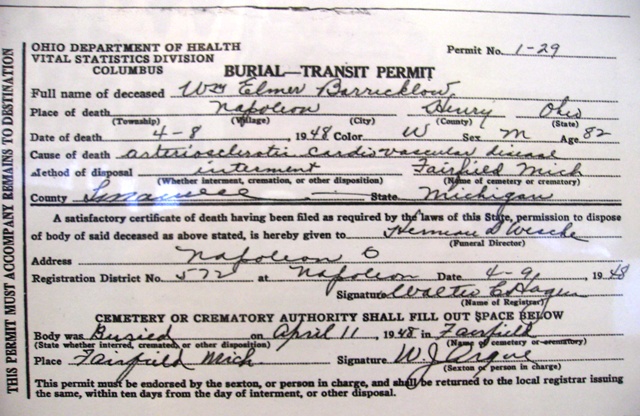 OHIO DEPARTMENT OF HEALTH
VITAL STATISTICS DIVISION
COLUMBUS
Permit No. 1-29
BURIAL—TRANSIT PERMIT
Full name of deceased Wm Elmer Barricklow
Place of death Napoleon Henry Ohio
(Township) (Village) (City) (County) (State)
Date of death 4-8 1948 Color W Sex M Age 82
Cause of death arteriosclerotic cardiovascular disease
Method of disposal interment Fairfield Mich
(Whether interment, cremation, or other disposition) (Name of cemetery or crematory)
County State Michigan
A satisfactory certificate of death having been filed as required by the laws of this State, permission to dispose
of body of said deceased as above stated, is hereby given to Herman D Wesche
(Funeral Director)
Address Napoleon O
Registration District No. 572 at Napoleon Date 4-9, 1948
Signature Walter C Hagen
(Name of Registrar)
CEMETERY OR CREMATORY AUTHORITY SHALL FILL OUT SPACE BELOW
Body was Buried on April 11, 1948 in Fairfield
(State whether interred, cremated, or other disposition) (Name of cemetery or crematory)
Place Fairfield Mich. Signature W. J. Argue
(Sexton or person in charge)
This permit must be endorsed by the sexton, or person in charge, and shall be returned to the local registrar issuing
the same, within ten days from the day of interment, or other disposal.
THIS PERMIT MUST ACCOMPANY REMAINS TO DESTINATION